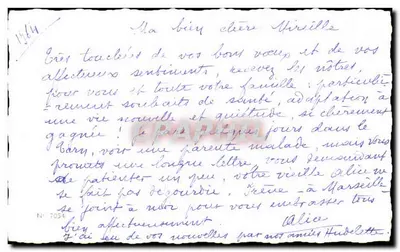 1964
Ma bien chère Mireille
Très touchées de vos bons voeux et de vos
affectueux sentiments, recevez les nôtres,
pour vous et toute votre famille, particuliè-
rement souhaits de santé, adaptation à
une vie nouvelle et quiétude, si chèrement
gagnée ! jours dans le
Tarn, voir une parente malade, mais vous
promets une longue lettre, vous demandant
de patienter un peu, votre vieille Alice ne
se fait pas dégourdie. Irène à Marseille
se joint à moi pour vous embrasser tous
bien affectueusement
Alice
J'ai eu de vos nouvelles par nos amies